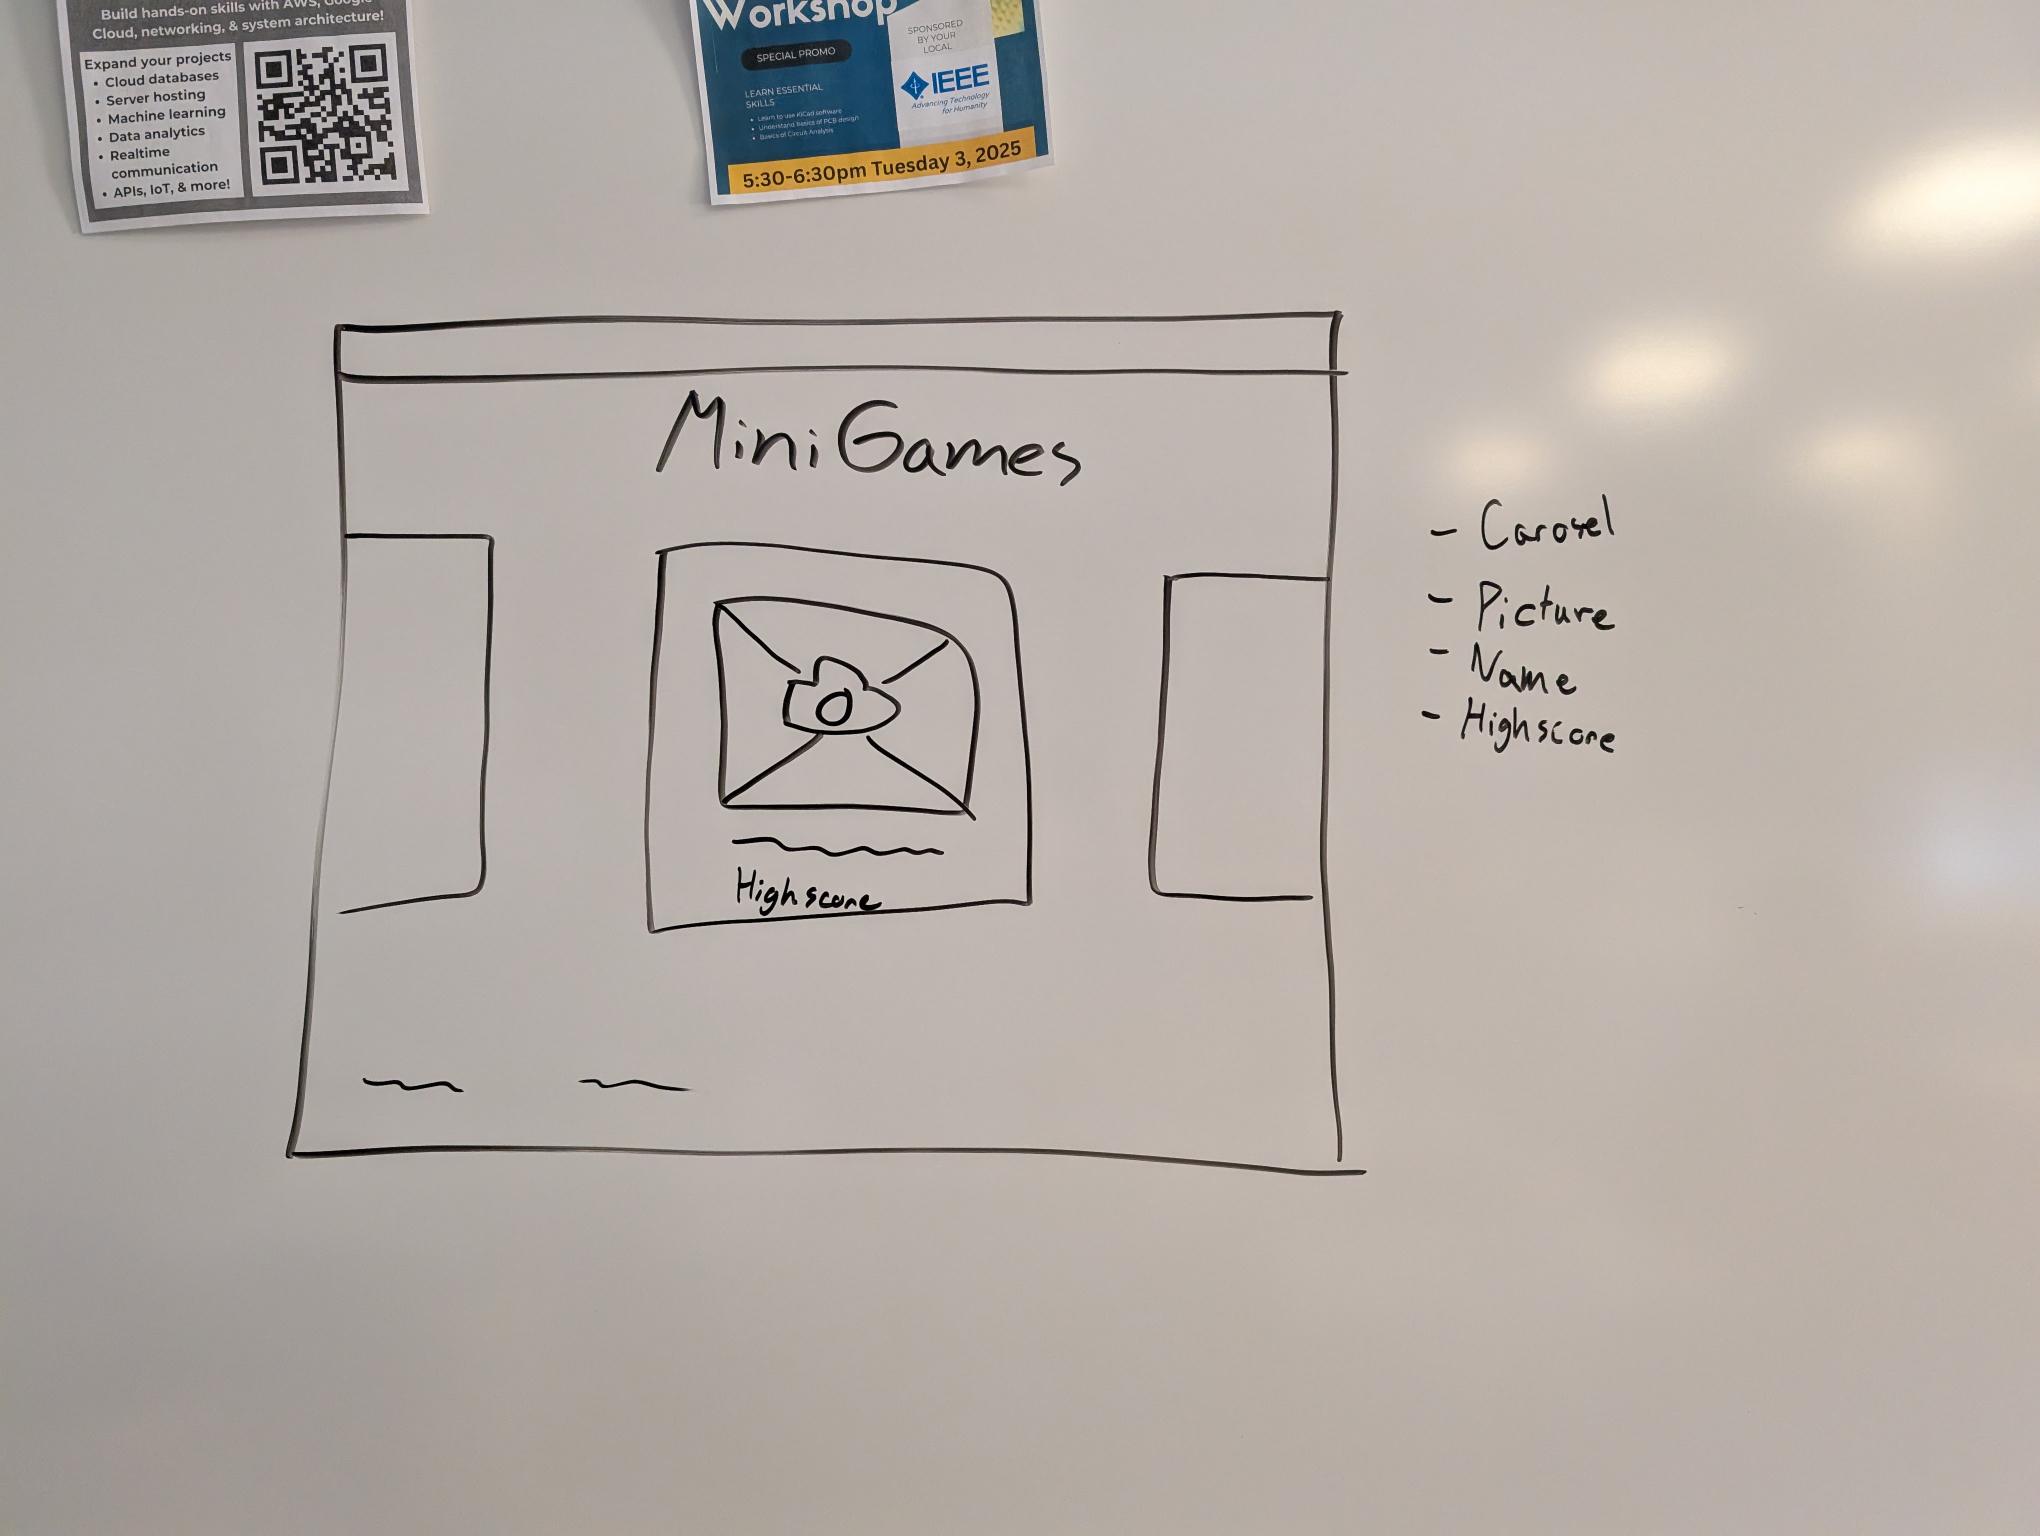 Build hands-on skills with AWS, Google
Cloud, networking, & system architecture!
Expand your projects
• Cloud databases
• Server hosting
• Machine learning
• Data analytics
• Realtime
communication
• APIs, IoT, & more!
Workshop
SPECIAL PROMO
LEARN ESSENTIAL
SKILLS
• Learn to use KiCad software
• Understand basics of PCB design
• Basics of Circuit Analysis
SPONSORED
BY YOUR
LOCAL
IEEE
Advancing Technology
for Humanity
5:30-6:30pm Tuesday 3, 2025
MiniGames
Highscore
- Carosel
- Picture
- Name
- Highscore